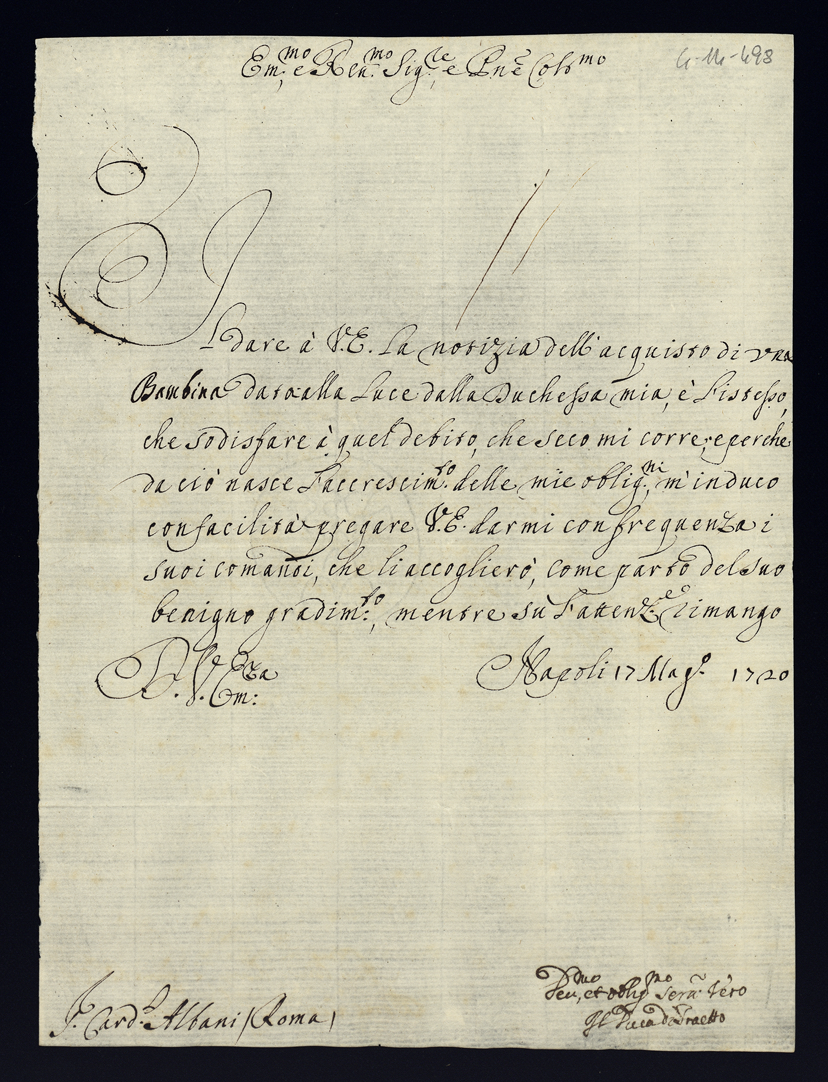 Em.mo e Reu.mo Sig.re e Pñe Colo.mo
4-14-498
Il dare à V.E. la notizia dell'acquisto di vna
Bambina data alla Luce dalla Duchessa mia, è l'istesso,
che sodisfare à quel debito, che seco mi corre, e perche
da ciò nasce l'accrescim.to delle mie oblig.ni, m'induco
con facilità pregare V.E. darmi con frequenza i
suoi comandi, che li accoglierò, come parto del suo
benigno gradim.to, mentre sù l'attenz.e rimango
D. V.ra Em.za
Napoli 17 Mag.o 1720
S. Card.l Albani (Roma)
Deu.mo, et oblig.mo Seru.r Vero
Il Duca di Traetto